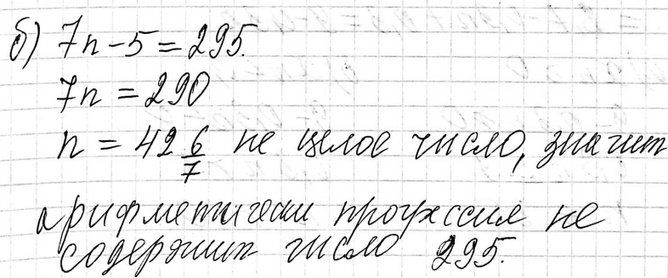 б) 7n - 5 = 295.
7n = 290
n = 42 6/7 не целое число, значит
арифметически прогрессия не
содержит число 295.